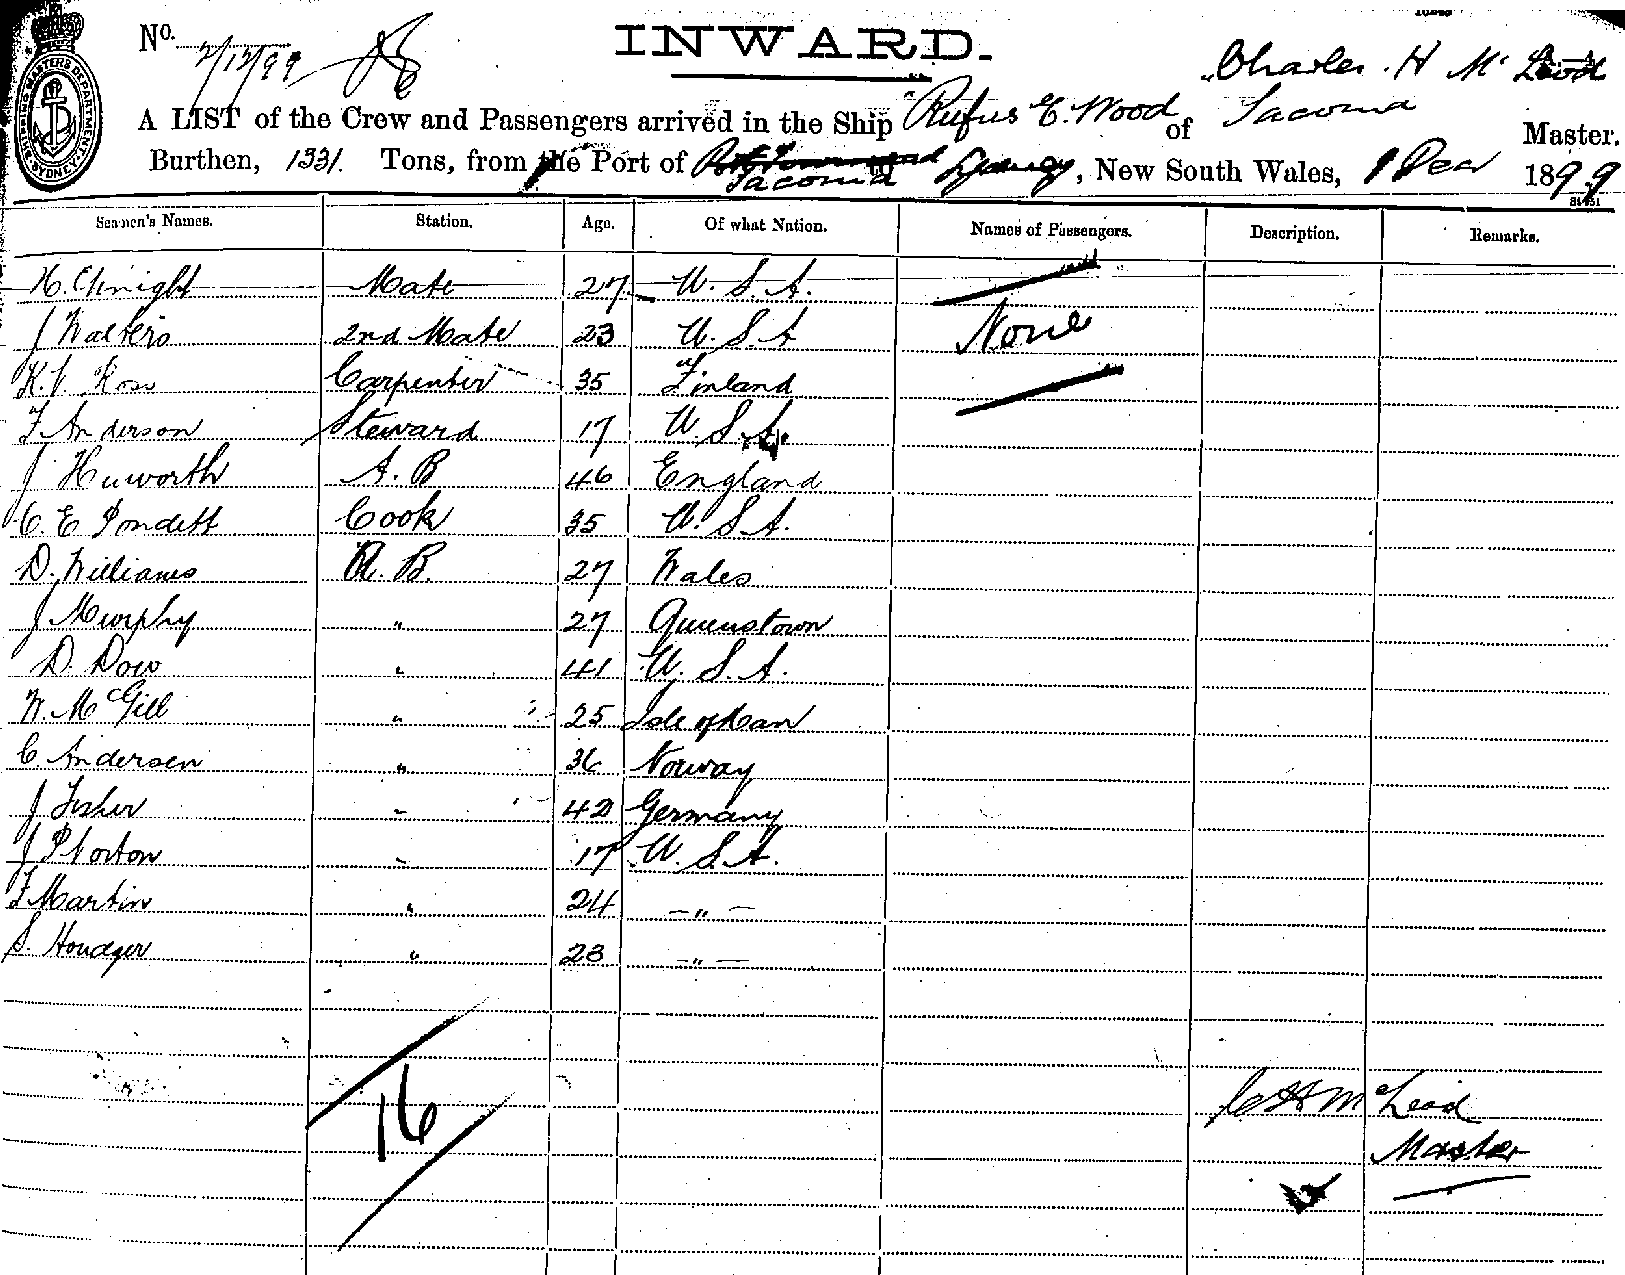 No. 2/12/99
INWARD.
Charles H McLeod
A LIST of the Crew and Passengers arrived in the Ship Rufus E. Wood of Tacoma Master.
Burthen, 1331. Tons, from the Port of Tacoma to Sydney, New South Wales, 1 Decr 1899
SHIPPING MASTERS DEPARTMENT. SYDNEY.
Seamen's Names. Station. Age. Of what Nation. Names of Passengers. Description. Remarks.
H. Mate 27 U.S.A.
J Walters 2nd Mate 23 U.S.A None
K.V. Ross Carpenter 35 Finland
F. Anderson Steward 17 U.S.A.
J. Haworth A.B 46 England
C.E Cook 35 U.S.A.
D. Williams A.B. 27 Wales
J Murphy " 27 Queenstown
D. Dow " 41 U.S.A.
W. McGill " 25 Isle of Man
C Andersen " 36 Norway
J Fisher " 42 Germany
J Norton " 17 U.S.A.
F Martin " 24 — " —
S. " 23 — " —
16
C H McLeod
Master